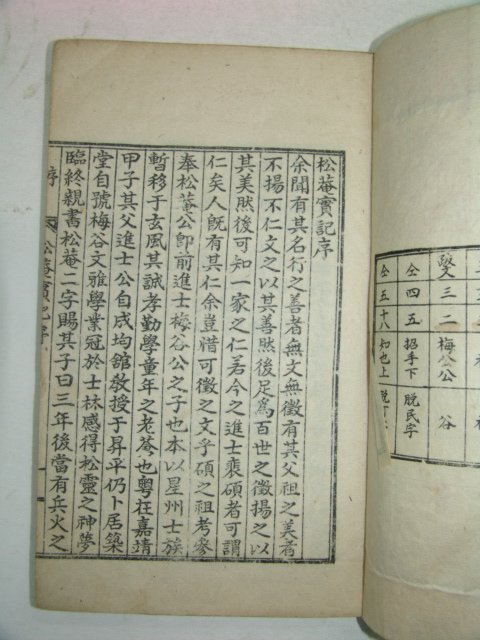 松菴實記序
余聞有其名行之善者無文無徵有其父祖之美者
不揚不仁文之以其善然後足爲百世之徵揚之以
其美然後可知一家之仁若今之進士裵碩者可謂
仁矣人既有其仁余豈惜可徵之文乎碩之祖考參
奉松菴公卽前進士梅谷公之子也本以星州士族
暫移于玄風其誠孝勤學童年之老蒼也粤在嘉靖
甲子其父進士公自成均舘敎授于昇平仍卜居築
堂自號梅谷文雅學業冠於士林感得松靈之神夢
臨終親書松菴二字賜其子曰三年後當有兵火之
序
松菴實記序
三二 梅公公 谷
仝 四五 招手下 脱民字
仝 五十八 知也上